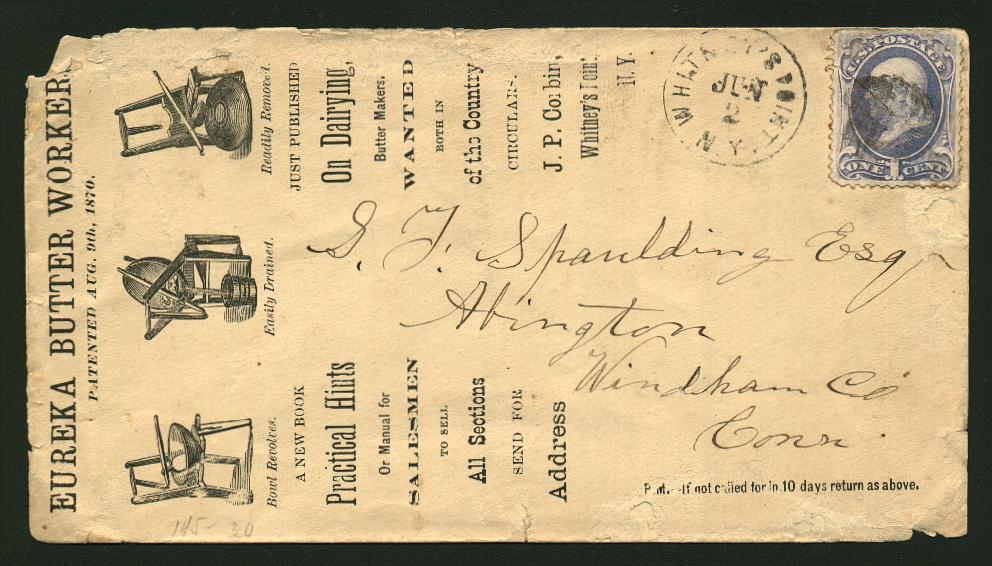 EUREKA BUTTER WORKER,
PATENTED AUG. 9th, 1870.
Bowl Revolves. Easily Drained. Readily Removed.
A NEW BOOK JUST PUBLISHED
Practical Hints On Dairying,
Or Manual for Butter Makers.
SALESMEN WANTED
TO SELL BOTH IN
All Sections of the Country
SEND FOR CIRCULARS.
Address J. P. Corbin,
Whitney's Point
N. Y.
WHITNEY'S POINT N.Y.
JUN
2
U.S. POSTAGE
ONE 1 CENT
G. F. Spaulding Esq
Abington
Windham Co
Conn
P.M.-If not called for in 10 days return as above.
145- 20